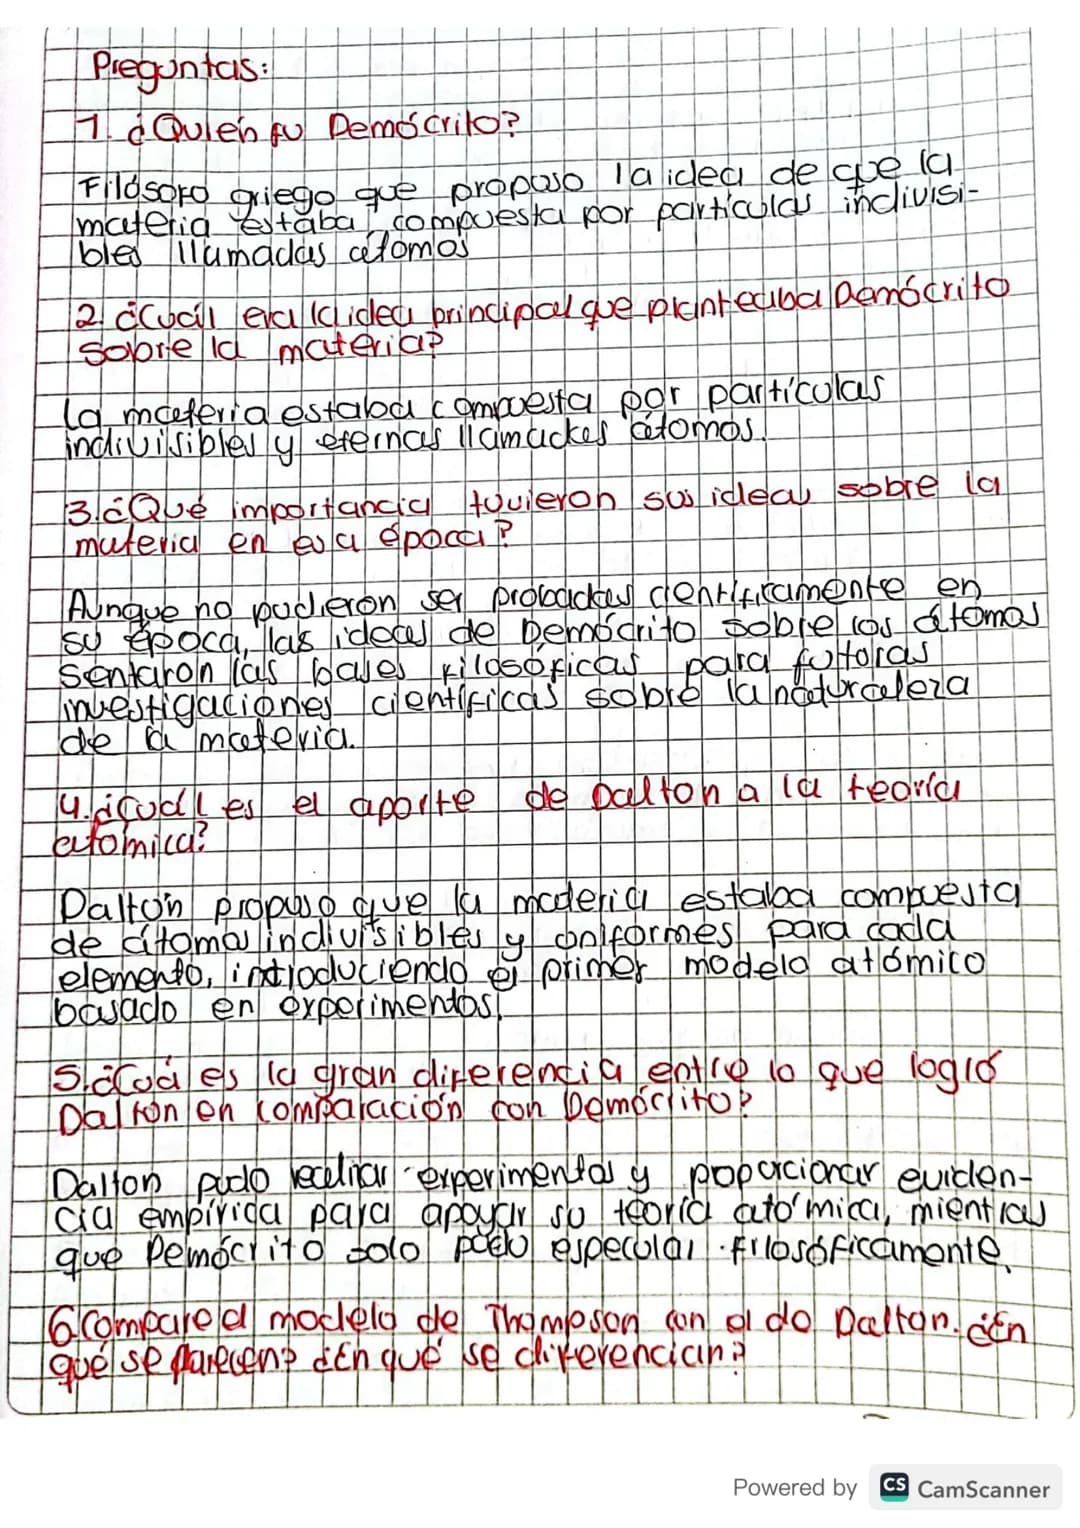 Preguntas:
1. ¿Quién fu Demócrito?
Filósofo griego que propuso la idea de que la
materia estaba compuesta por partículas indivisi-
bles llamadas átomos
2. ¿Cuál era la idea principal que planteaba Demócrito
sobre la materia?
La materia estaba compuesta por partículas
indivisibles y eternas llamadas átomos.
3. ¿Qué importancia tuvieron sus ideas sobre la
materia en esa época?
Aunque no pudieron ser probadas científicamente en
su época, las ideas de Demócrito sobre los átomos
sentaron las bases filosóficas para futuras
investigaciones científicas sobre la naturaleza
de la materia.
4. ¿Cuál es el aporte de Dalton a la teoría
atómica?
Dalton propuso que la materia estaba compuesta
de átomos indivisibles y uniformes para cada
elemento, introduciendo el primer modelo atómico
basado en experimentos.
5. ¿Cuá es la gran diferencia entre lo que logró
Dalton en comparación con Demócrito?
Dalton pudo realizar experimentos y proporcionar eviden-
cia empírica para apoyar su teoría atómica, mientras
que Demócrito solo pudo especular filosóficamente.
6 Compare el modelo de Thompson con el de Dalton. ¿En
qué se parecen? ¿En qué se diferencian?
Powered by CS CamScanner